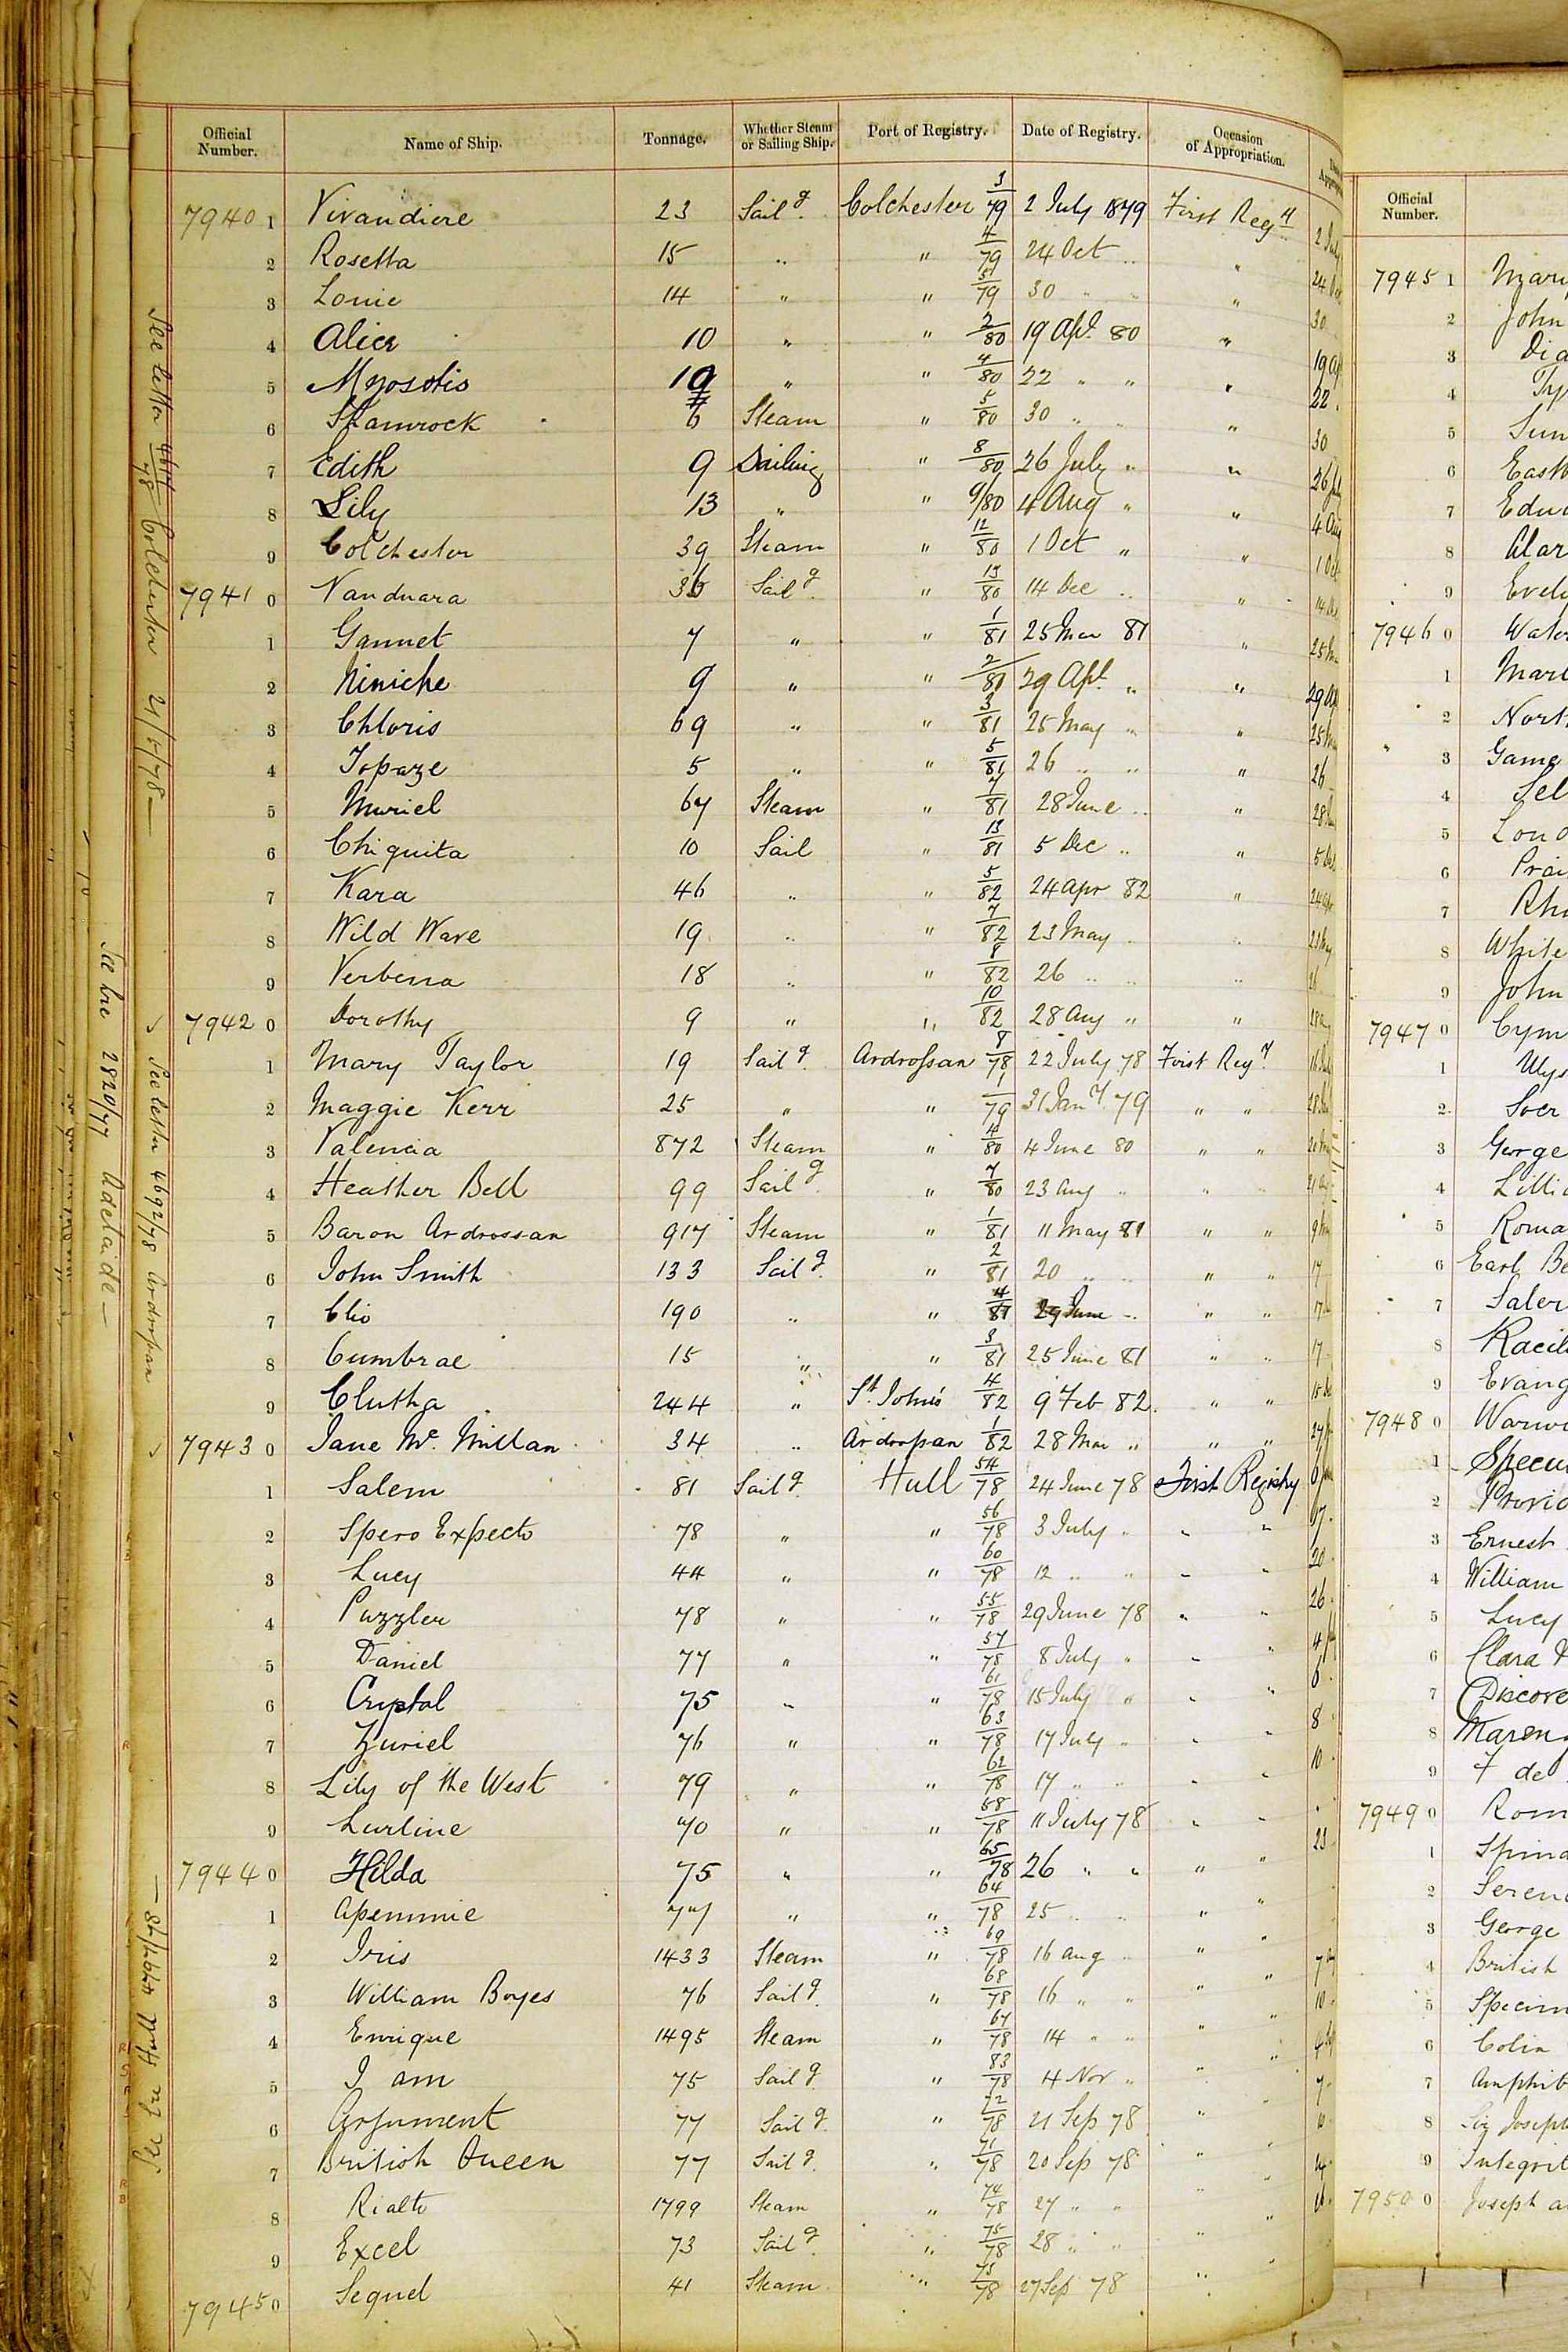 Official Number. Name of Ship. Tonnage. Whether Steam or Sailing Ship. Port of Registry. Date of Registry. Occasion of Appropriation.
7940 1 Vivandiere 23 Sailg. Colchester 3/79 2 July 1879 First Regy
2 Rosetta 15 " " 4/79 24 Oct "
3 Louie 14 " " 5/79 30 " " "
4 Alice 10 " " 2/80 19 Apl. 80 "
5 Myosotis 19 " " 4/80 22 " " "
6 Shamrock 6 Steam " 5/80 30 " " "
7 Edith 9 Sailing " 8/80 26 July " "
8 Lily 13 " " 9/80 4 Aug " "
9 Colchester 39 Steam " 12/80 1 Oct " "
7941 0 Vanduara 36 Sailg. " 13/80 14 Dec " "
1 Gannet 7 " " 1/81 25 Mar 81 "
2 Niniche 9 " " 2/81 29 Apl. " "
3 Chloris 69 " " 3/81 25 May " "
4 Topaze 5 " " 5/81 26 " " "
5 Muriel 67 Steam " 7/81 28 June " "
6 Chiquita 10 Sail " 13/81 5 Dec " "
7 Kara 46 " " 5/82 24 Apr 82 "
8 Wild Wave 19 " " 7/82 23 May " "
9 Verbena 18 " " 8/82 26 " " "
7942 0 Dorothy 9 " " 10/82 28 Aug " "
1 Mary Taylor 19 Sailg. Ardrossan 8/78 22 July 78 First Regy.
2 Maggie Kerr 25 " " 1/79 31 Jany 79 " "
3 Valencia 872 Steam " 4/80 4 June 80 " "
4 Heather Bell 99 Sailg " 7/80 23 Aug " " "
5 Baron Ardrossan 917 Steam " 1/81 11 May 81 " "
6 John Smith 133 Sailg. " 2/81 20 " " " "
7 Clio 190 " " 4/81 29 June " " "
8 Cumbrae 15 " " 3/81 25 June 81 " "
9 Clutha 244 " St. John's 4/82 9 Feb 82. " "
7943 0 Jane Mc. Millan 34 " Ardrossan 1/82 28 Mar " " "
1 Salem 81 Sailg. Hull 54/78 24 June 78 First Registry
2 Spero Expecto 78 " " 56/78 3 July " " "
3 Lucy 44 " " 60/78 12 " " " "
4 Puzzler 78 " " 55/78 29 June 78 " "
5 Daniel 77 " " 57/78 8 July " " "
6 Crystal 75 " " 61/78 15 July " " "
7 Zuriel 76 " " 63/78 17 July " " "
8 Lily of the West 79 " " 62/78 17 " " " "
9 Lurline 70 " " 58/78 11 July 78 " "
7944 0 Hilda 75 " " 65/78 26 " " " "
1 77 " " 64/78 25 " " " "
2 Iris 1433 Steam " 69/78 16 Aug " " "
3 William Boyes 76 Sailg. " 68/78 16 " " " "
4 Enrique 1495 Steam " 67/78 14 " " " "
5 I am 75 Sailg. " 83/78 4 Nov " " "
6 Argument 77 Sailg. " 72/78 21 Sep 78 " "
7 British Queen 77 Sailg. " 71/78 20 Sep 78 " "
8 Rialto 1799 Steam " 74/78 27 " " " "
9 Excel 73 Sailg " 75/78 28 " " " "
7945 0 Sequel 41 Steam " 73/78 27 Sep 78 " "
See letter Colchester 21/5/78
See letter 4692/78 Ardrossan
See bre 2820/77 Adelaide
Official Number.
7945 1
2 John
3
4
5
6
7
8
9
7946 0
1
2
3 Game
4
5
6
7
8 White
9 John
7947 0
1
2
3 George
4
5
6 Earl
7
8
9
7948 0
1
2
3 Ernest
4 William
5 Lucy
6 Clara
7
8
9 7 de
7949 0
1
2
3 George
4 British
5
6 Colin
7
8 Sir Joseph
9
7950 0 Joseph